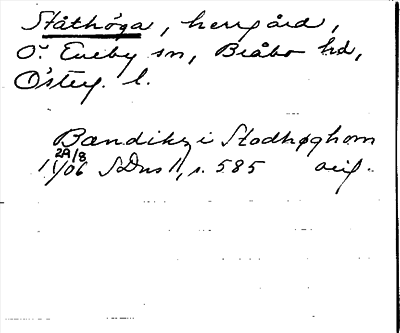 Ståthöga, herrgård,
Ö. Eneby sn, Bråbo hd,
Österg. l.
Bændikz i Stodhøghom
29/8
1406 SDns 1, s. 585 orig.